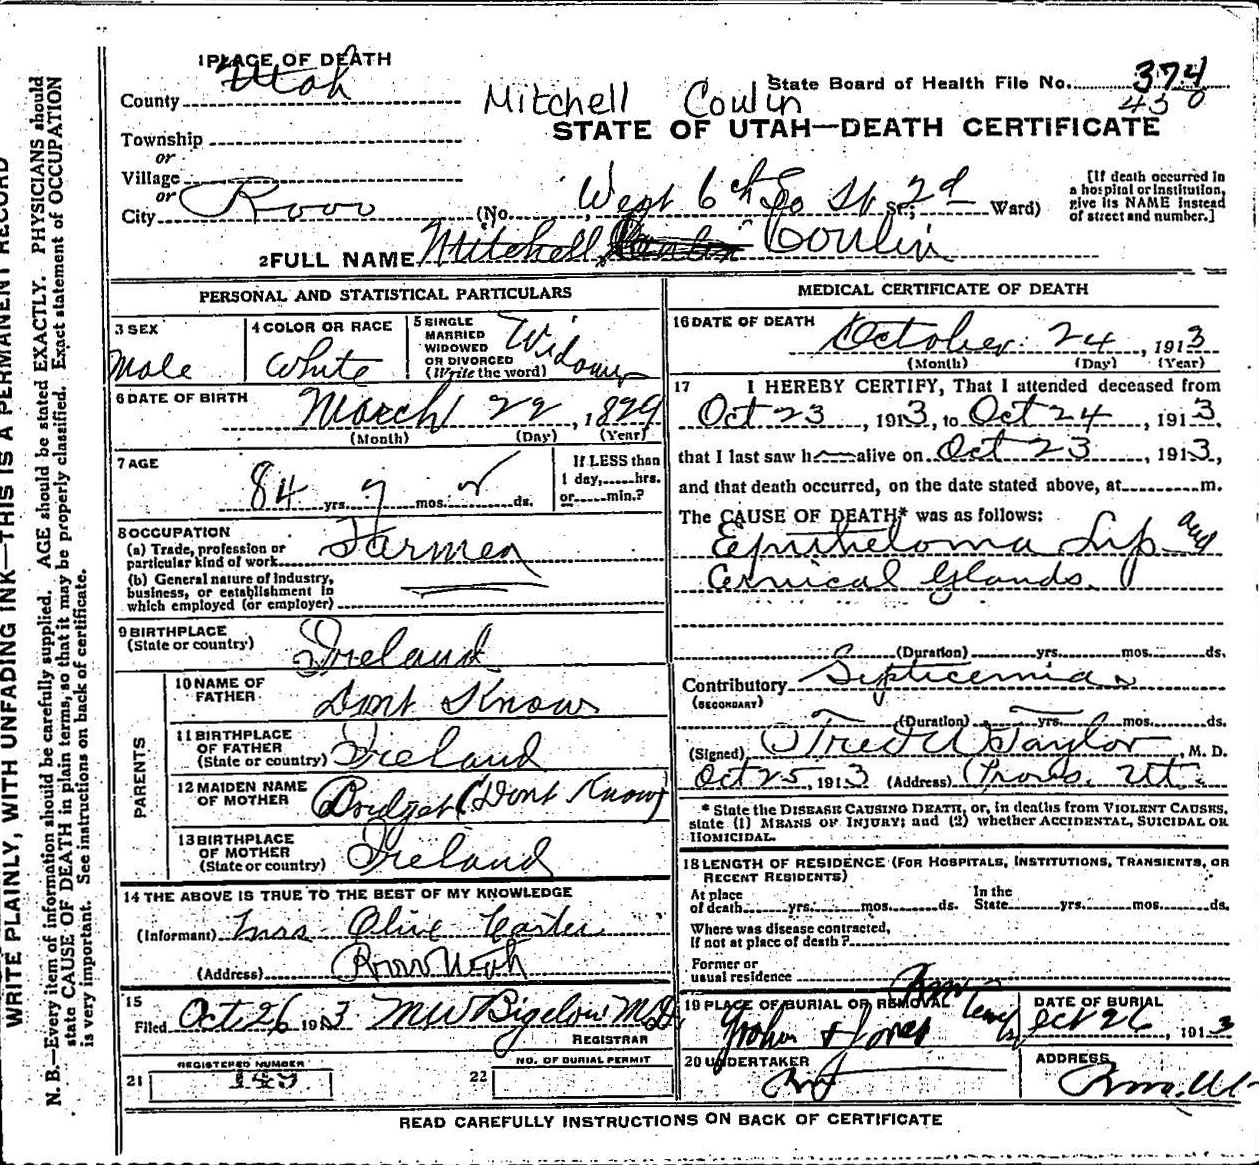 WRITE PLAINLY, WITH UNFADING INK—THIS IS A PERMANENT RECORD
N. B.—Every item of information should be carefully supplied. AGE should be stated EXACTLY. PHYSICIANS should
state CAUSE OF DEATH in plain terms, so that it may be properly classified. Exact statement of OCCUPATION
is very important. See instructions on back of certificate.
1 PLACE OF DEATH
County Utah
Township
or
Village
or
City Provo
State Board of Health File No. 374
430
Mitchell Coulin
STATE OF UTAH—DEATH CERTIFICATE
(No. West 6th So St St.; 2d Ward)
[If death occurred in
a hospital or institution,
give its NAME instead
of street and number.]
2 FULL NAME Mitchell Coulin
PERSONAL AND STATISTICAL PARTICULARS
3 SEX
Male
4 COLOR OR RACE
White
5 SINGLE
MARRIED
WIDOWED
OR DIVORCED
(Write the word)
6 DATE OF BIRTH
March 22, 1829
(Month) (Day) (Year)
7 AGE
84 yrs. 7 mos. ds.
If LESS than
1 day, hrs.
or min.?
8 OCCUPATION
(a) Trade, profession or
particular kind of work Farmer
(b) General nature of industry,
business, or establishment in
which employed (or employer)
9 BIRTHPLACE
(State or country) Ireland
PARENTS
10 NAME OF
FATHER Dont Know
11 BIRTHPLACE
OF FATHER
(State or country) Ireland
12 MAIDEN NAME
OF MOTHER Bridget (Dont Know)
13 BIRTHPLACE
OF MOTHER
(State or country) Ireland
14 THE ABOVE IS TRUE TO THE BEST OF MY KNOWLEDGE
(Informant) Mrs Olive Carter
(Address) Provo Utah
15
Filed Oct 26 1913 M W Bigelow M.D.
REGISTRAR
REGISTERED NUMBER
21 149
NO. OF BURIAL PERMIT
22
MEDICAL CERTIFICATE OF DEATH
16 DATE OF DEATH
October 24, 1913
(Month) (Day) (Year)
17 I HEREBY CERTIFY, That I attended deceased from
Oct 23, 1913, to Oct 24, 1913,
that I last saw h alive on Oct 23, 1913,
and that death occurred, on the date stated above, at m.
The CAUSE OF DEATH* was as follows:
Epitheloma Lip and
Cervical Glands
(Duration) yrs. mos. ds.
Contributory Septicemia
(SECONDARY)
(Duration) yrs. mos. ds.
(Signed) Fred W Taylor, M. D.
Oct 25, 1913 (Address) Provo, Ut.
* State the DISEASE CAUSING DEATH, or, in deaths from VIOLENT CAUSES,
state (1) MEANS OF INJURY; and (2) whether ACCIDENTAL, SUICIDAL OR
HOMICIDAL.
18 LENGTH OF RESIDENCE (FOR HOSPITALS, INSTITUTIONS, TRANSIENTS, OR
RECENT RESIDENTS)
At place
of death yrs. mos. ds.
In the
State yrs. mos. ds.
Where was disease contracted,
if not at place of death?
Former or
usual residence
19 PLACE OF BURIAL OR REMOVAL
DATE OF BURIAL
Oct 26, 1913
20 UNDERTAKER
ADDRESS
READ CAREFULLY INSTRUCTIONS ON BACK OF CERTIFICATE